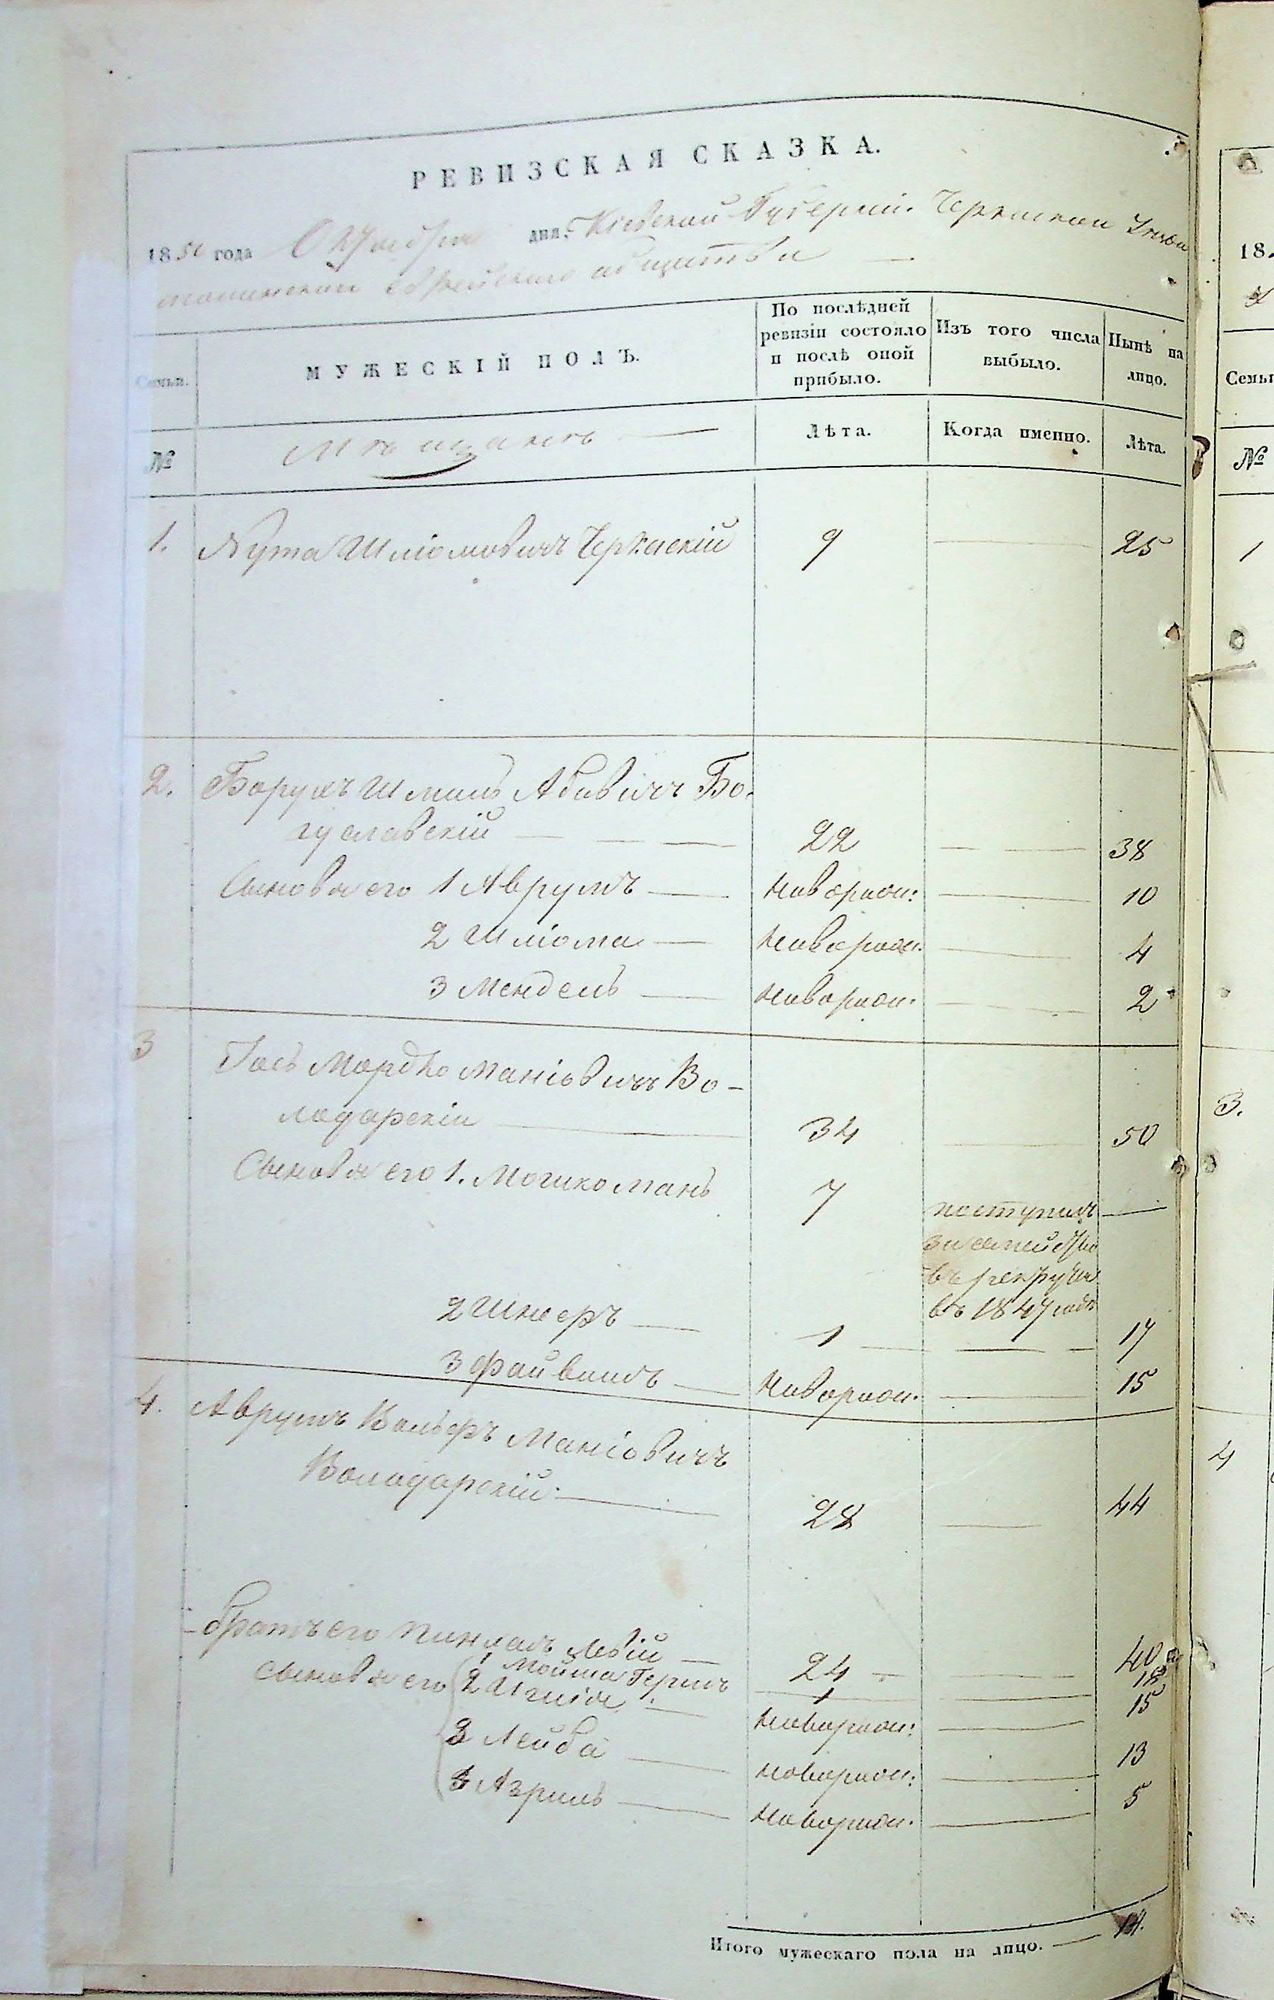 РЕВИЗСКАЯ СКАЗКА.
1850 года Октября дня. Кіевской Губерніи Черкаскаго Уезда
еврейскаго общества
Семьи.
МУЖЕСКІЙ ПОЛЪ.
По послѣдней ревизіи состояло и послѣ оной прибыло.
Изъ того числа выбыло.
Нынѣ на лицо.
№
Мѣщанъ
Лѣта.
Когда именно.
Лѣта.
1. Нута Шліомовичъ Черкаскій 9 25
2. Борухъ Шмиль Абовичъ Бо-
гуславскій 22 38
Сыновья его 1 Аврумъ новорож: 10
2 Шліома новорож. 4
3 Мендель новорож. 2
3 Гось Мордко Маніовичъ Во-
лодарскій 34 50
Сыновья его 1. Мошко Манъ 7 поступилъ
за семейство
въ рекруты
въ 1847 годѣ
2 Шнеръ 1 17
3 Файвишъ новорож. 15
4. Аврумъ Вольфъ Маніовичъ
Володарскій 28 44
братъ его Пинхасъ Левій 24 40
Сыновья его 1 Мойша Герш 1
2 новорож: 15
3 Лейба новорож: 13
4 Азриль новорож. 5
Итого мужескаго пола на лицо. 14.
18
Семьи
№
1
3.
4